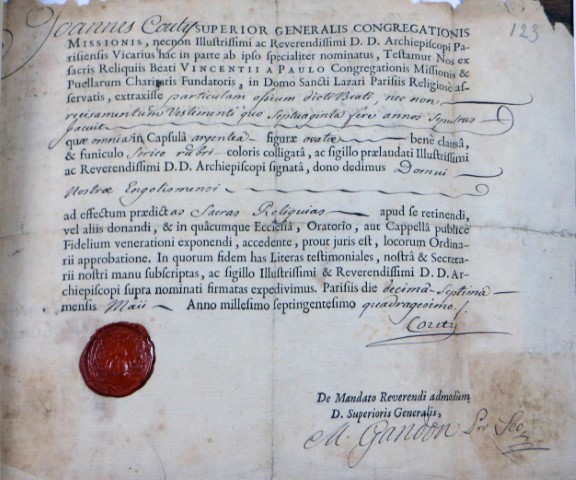 Joannes Couty SUPERIOR GENERALIS CONGREGATIONIS
123
MISSIONIS, necnon Illustrissimi ac Reverendissimi D. D. Archiepiscopi Pa-
risiensis Vicarius hac in parte ab ipso specialiter nominatus, Testamur Nos ex
sacris Reliquiis Beati VINCENTII A PAULO Congregationis Missionis &
Puellarum Charitatis Fundatoris, in Domo Sancti Lazari Parisiis Religiose as-
servatis, extraxisse particulam ossium dicti Beati, nec non
recisamentum Vestimenti quo Septuaginta fere annos Sepultus
jacuit
quæ omnia in Capsulâ argenteâ figuræ ovatæ benè clausâ,
& funiculo Serico rubri coloris colligatâ, ac sigillo prælaudati Illustrissimi
ac Reverendissimi D. D. Archiepiscopi signatâ, dono dedimus Domui
Nostræ Engolismensi
ad effectum prædictas Sacras Reliquias apud se retinendi,
vel aliis donandi, & in quâcumque Ecclesiâ, Oratorio, aut Cappellâ publicè
Fidelium venerationi exponendi, accedente, prout juris est, locorum Ordina-
rii approbatione. In quorum fidem has Literas testimoniales, nostrâ & Secreta-
rii nostri manu subscriptas, ac sigillo Illustrissimi & Reverendissimi D. D. Ar-
chiepiscopi supra nominati firmatas expedivimus. Parisiis die decimâ-Septimâ
mensis Maii Anno millesimo septingentesimo quadragesimo
Couty
De Mandato Reverendi admodùm
D. Superioris Generalis,
M. Gandon Pro Sec.